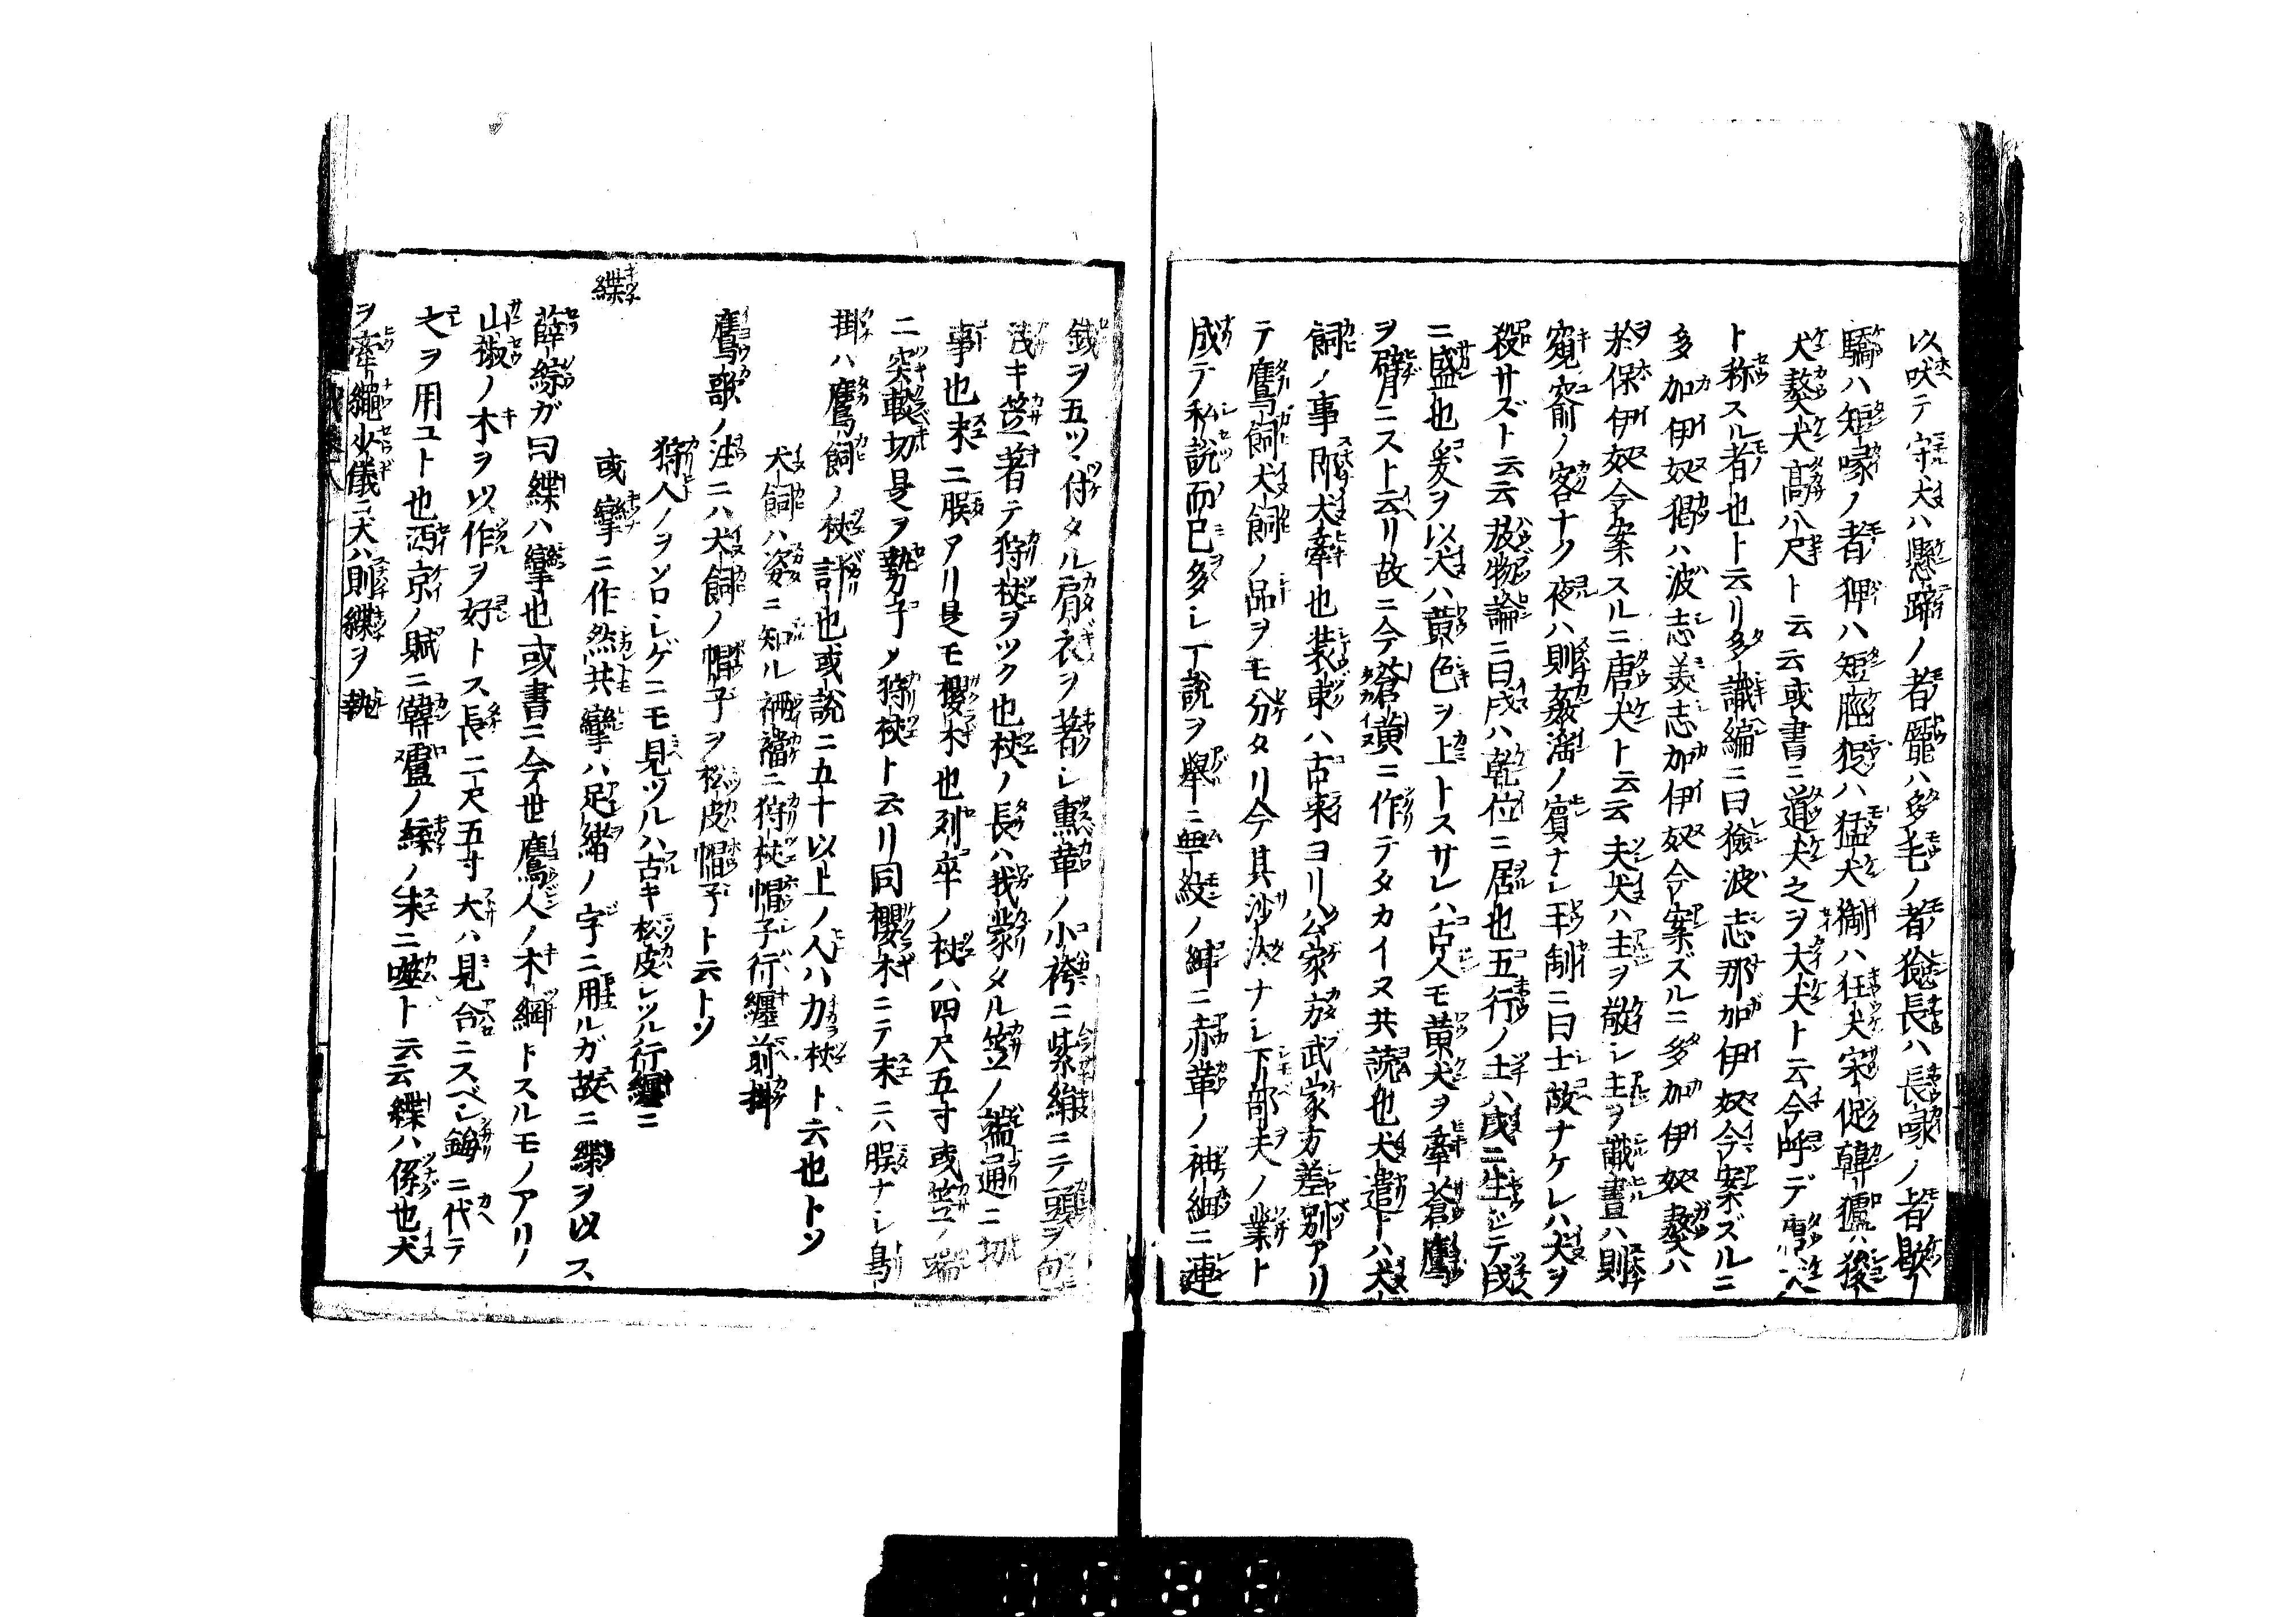 以吠テ守犬ハ懸蹄ノ者厖ハ多毛ノ者獫長ハ長喙ノ者歇
驕ハ短喙ノ者猈ハ短脛狠ハ猛犬猘ハ狂犬宋促韓獹ハ後
犬獒犬高八尺ト云云或書ニ道犬之ヲ大犬ト云今呼デ
ト称スル者也ト云リ多識編ニ曰獫波志那加伊奴今案ズルニ
多加伊奴猲ハ波志美志加伊奴今案ズルニ多加伊奴獒ハ
於保伊奴今案スルニ唐犬ト云云夫犬ハ主ヲ敬シ主ヲ識晝ハ則
窺窬ノ客ナク夜ハ則姦淫ノ賓ナシ王制ニ曰士故ナケレハ犬ヲ
殺サズト云云放物論ニ曰戌ハ乾位ニ居也五行ノ土ハ戌ニ生シテ戌
ニ盛也爰ヲ以犬ハ黄色ヲ上トスサレハ古人モ黄犬ヲ牽蒼鷹
ヲ臂ニスト云リ故ニ今蒼黄ニ作テタカイヌ共読也犬遣トハ犬
飼ノ事所犬牽也装束ハ古来ヨリ公家方武家方差別アリ
テ鷹飼犬飼ノ品ヲモ分タリ今其沙汰ナシ下部夫ノ業ト
成テ私説而已多シ一説ヲ舉ニ無紋ノ絆ニ赤革ノ袖細ニ連
銭ヲ五ツヽ付タル肩衣ヲ著シ熏革ノ小袴ニ紫絹ニテ頭ヲ包
浅キ笠著テ狩杖ヲツク也杖ノ長ハ我蒙タル笠ノ端通ニ切
事也末ニ脵アリ是モ櫻木也列卒ノ杖ハ四尺五寸或笠ノ端
ニ突裁切是ヲ勢子ノ狩杖ト云リ同櫻木ニテ末ニハ脵ナシ鳥
掛ハ鷹飼ノ杖計也或説ニ五十以上ノ人ハ力杖ト云也トソ
犬飼ハ姿ニ知ル裲襠ニ狩杖帽子行纏前掛
鷹歌ノ注ニハ犬飼ノ帽子ヲ松皮帽子ト云トソ
狩人ノヲソロシゲニモ見ツルハ古キ松皮シツル行纏ニ
緤
或攣ニ作然共攣ハ足緒ノ字ニ用ルガ故ニ緤ヲ以ス
薛綜ガ曰緤ハ攣也或書ニ今世鷹人ノ木綱トスルモノアリ
山椒ノ木ヲ以作ヲ好トス長二尺五寸大ハ見合ニスベシ鎖ニ代テ
之ヲ用コト也西京ノ賦ニ韓盧ノ緤ノ末ニ噬ト云云緤ハ係也犬
ヲ牽繩少儀ニ犬ハ則緤ヲ執